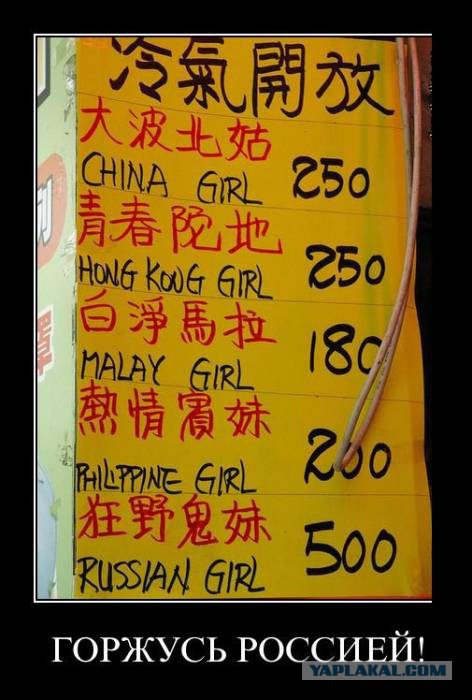 冷氣開放
大波北姑
CHINA GIRL 250
青春陀地
HONG KOUG GIRL 250
白淨馬拉
MALAY GIRL 180
熱情賓妹
PHILIPPINE GIRL 200
狂野鬼妹
RUSSIAN GIRL 500
ГОРЖУСЬ РОССИЕЙ!
YAPLAKAL.COM